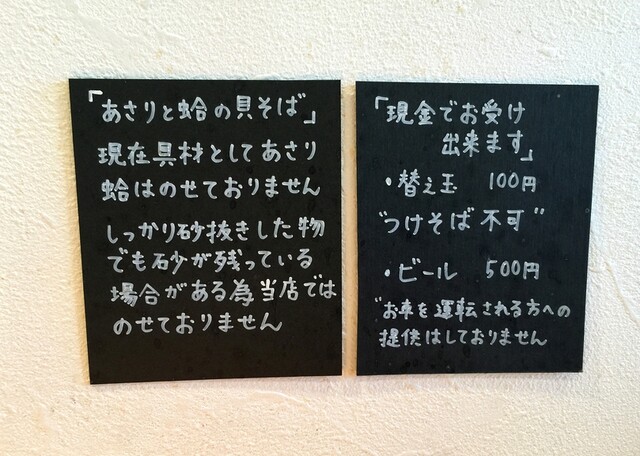 「あさりと蛤の貝そば」
現在具材としてあさり
蛤はのせておりません
しっかり砂抜きした物
でも砂が残っている
場合がある為当店では
のせておりません
「現金でお受け
出来ます」
・替え玉 100円
"つけそば 不可"
・ビール 500円
"お車を運転される方への
提供はしておりません